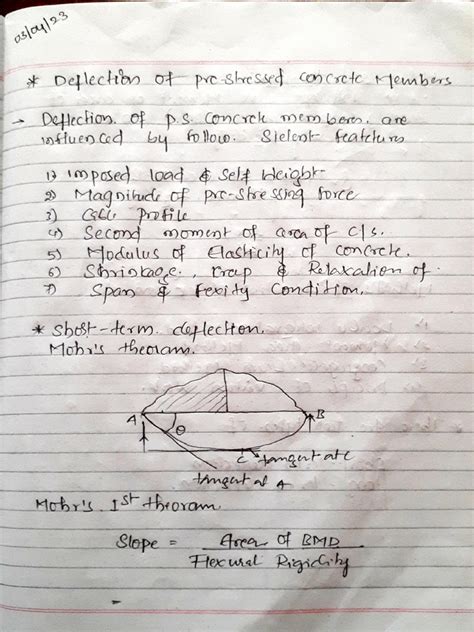 03/04/23
* Deflection of pre-stressed concrete Members
- Deflection of p.s. concrete members are
influenced by follow. Sielent featctures
1) imposed load & Self Weight
2) Magnitude of pre-stressing force
3) Cable Profile
4) Second moment of area of c/s.
5) Modulus of Elasticity of concrete.
6) Shrinkage, Creep & Relaxation of
7) Span & Fexity Condition.
* Short-term deflection.
Mohr's theoram.
A θ B
C tangent at C
tangent at A
Mohr's 1st theoram
Slope = Area of BMD
Flexural Rigidity